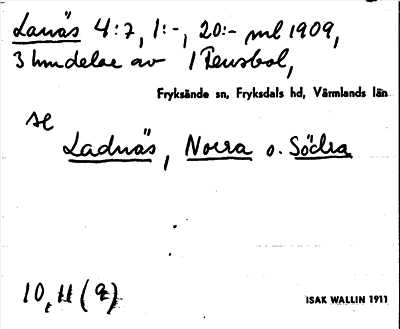 Lanäs 4:7, 1:-, 20:- ml 1909,
3 hmdelar av 1 Tensbol,
Fryksände sn, Fryksdals hd, Värmlands län
se
Ladnäs, Norra o. Södra
10, 11 (9)
ISAK WALLIN 1911